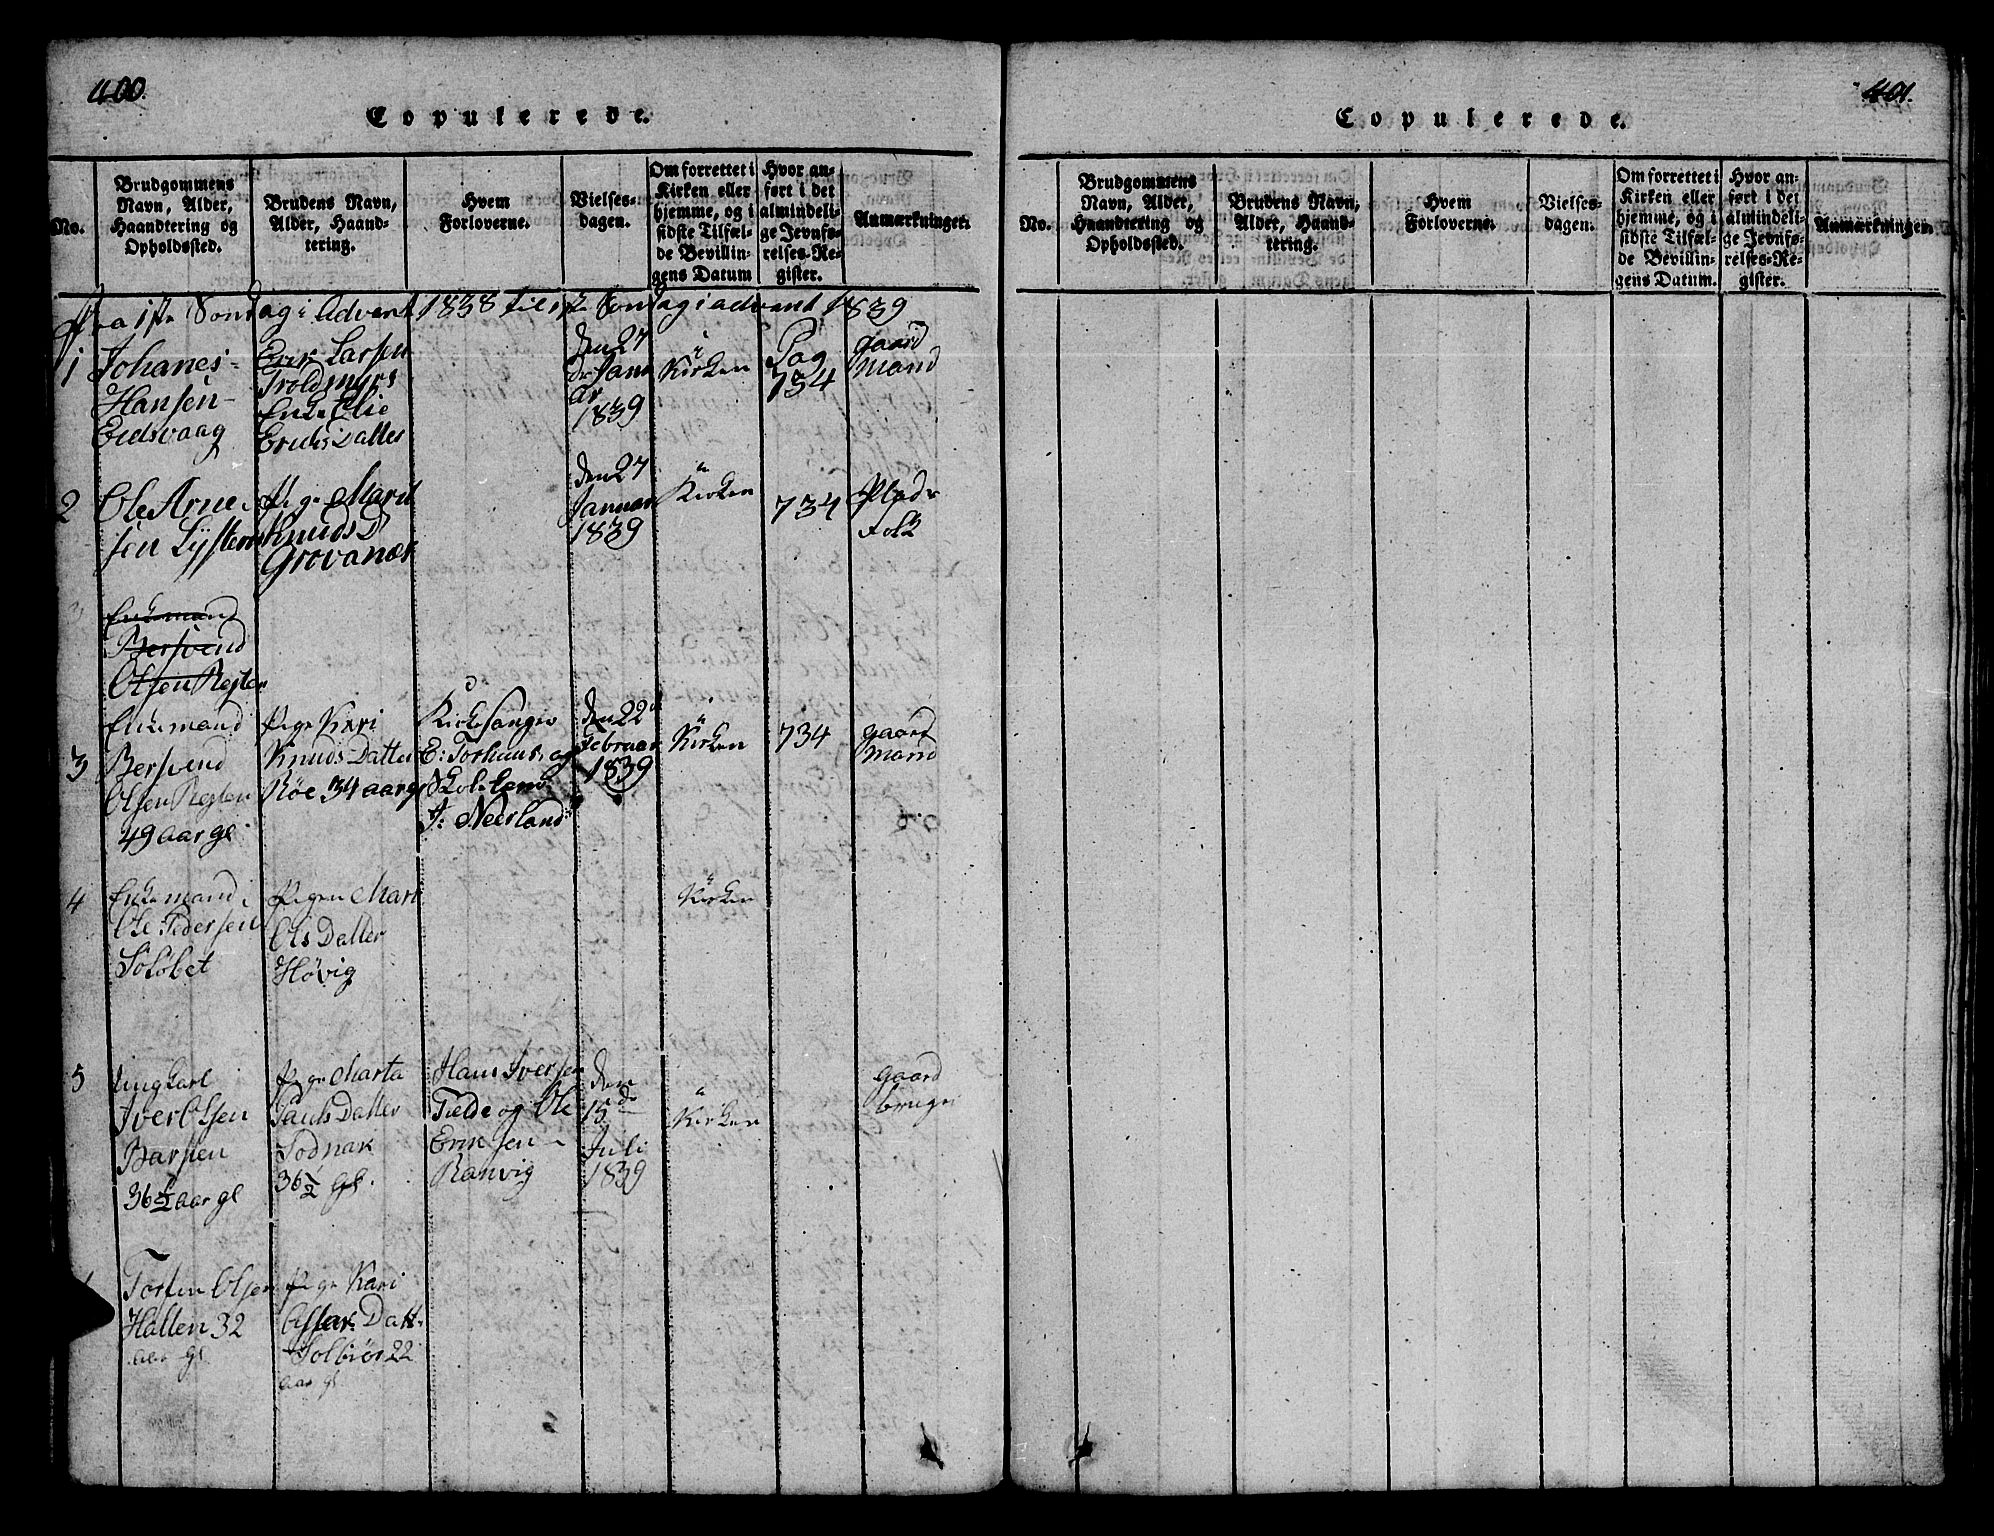 400.
Copulerede.
No.
Brudgommens Navn, Alder, Haandtering og Opholdssted.
Brudens Navn, Alder, Haandtering.
Hvem Forloverne.
Vielsesdagen.
Om forrettet i Kirken eller hjemme, og i sidste Tilfælde Bevillingens Datum
Hvor anført i det almindelige Jevnførelses-Register.
Anmærkninger.
fra 1ste Søndag i Advent 1838 til 1ste Søndag i advent 1839
1
Johanes
Hansen
Eidsvaag
Erik Larsen
Troldmyrs
Enke Elie
Eriks Datter
den 27
de Janu
ar
1839
i Kirken
Pag
734
gaard
Mand
2
Ole Arne
sen Lysteen
Pige Marit
Knuds D
Grovanæs
den 27
Januar
1839
i Kirken
734
Plads
Folk
3
Enkemand
Bersvend
Olsen Resten
3
Enkemand
Bersvend
Olsen Resten
49 aar gl
Pige Kari
Knuds Datter
Röe 34 aar gl
Kirkesanger
E: Torhuus og
Skolelem
J: Neerland
den 22
Februar
1839
i Kirken
734
gaard
Mand
4
Enkemand
Ole Pedersen
Solsbet
Pigen Marit
Ols Datter
Høvig
i Kirken
5
Ungkarl
Iver Olsen
Barsten
36 1/2 aar gl
Pige Marta
Pauls Datter
Sodnak
36 1/2 gl.
Hans Iversen
Tielde og Ole
Eriksen
Ranvig
den
15de
Juli
1839
i Kirken
gaard
bruger
Torsten Olsen
Hallen 32
aar gl
Pige Kari
Datt
Solbiör 22
aar gl
401.
Copulerede.
No.
Brudgommens Navn, Alder, Haandtering og Opholdssted.
Brudens Navn, Alder, Haandtering.
Hvem Forloverne.
Vielsesdagen.
Om forrettet i Kirken eller hjemme, og i sidste Tilfælde Bevillingens Datum.
Hvor anført i det almindelige Jevnførelses-Register.
Anmærkninger.